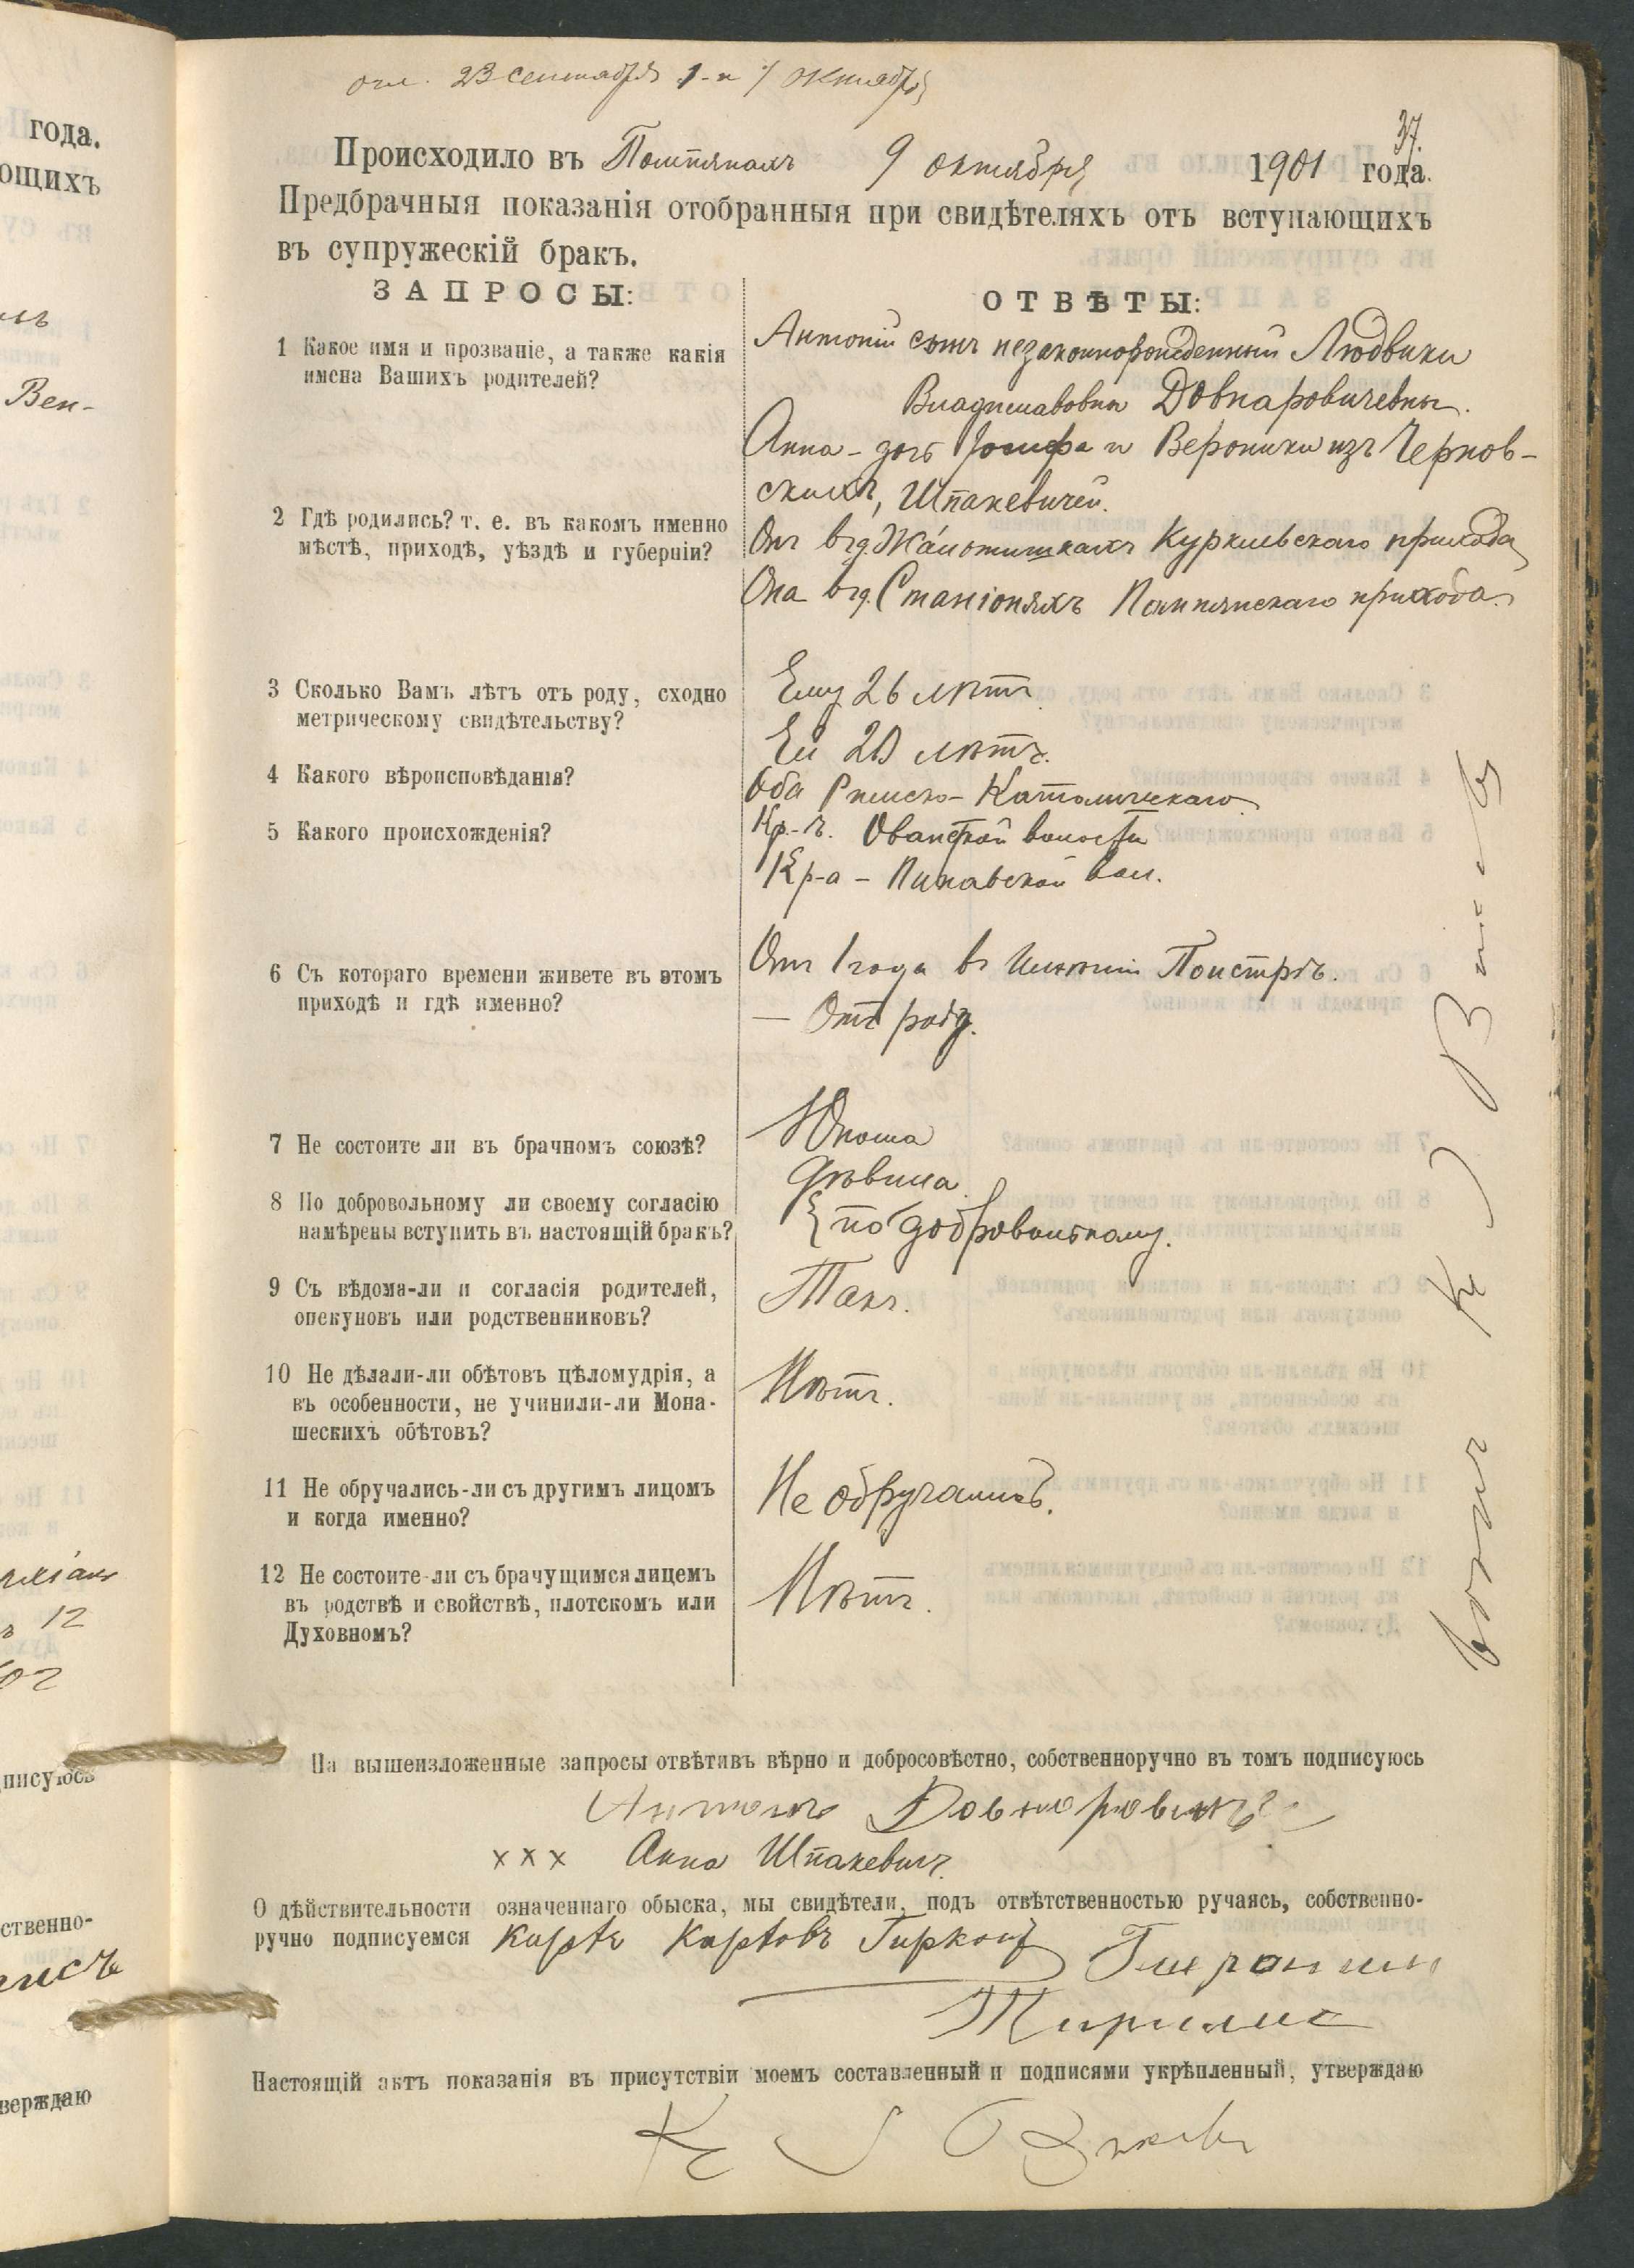 огл. 23 сентября 1-и 7 октября
37.
Происходило въ Помпянахъ 9 октября 1901 года.
Предбрачныя показанія отобранныя при свидѣтеляхъ отъ вступающихъ
въ супружескій бракъ.
ЗАПРОСЫ:
ОТВѢТЫ:
1 Какое имя и прозваніе, а также какія
имена Вашихъ родителей?
Антоній сынъ незаконнорожденный Людвики
Владиславовны Довнаровичевны.
Анна - дочь Іосифа и Вероники изъ Чернов-
скихъ, Шпакевичей.
2 Гдѣ родились? т. е. въ какомъ именно
мѣстѣ, приходѣ, уѣздѣ и губерніи?
Онъ въ д. Жаіотишкахъ Куркльевскаго прихода
Она въ д. Станіоняхъ Помпянскаго прихода.
3 Сколько Вамъ лѣтъ отъ роду, сходно
метрическому свидѣтельству?
Ему 26 лѣтъ.
Ей 20 лѣтъ.
4 Какого вѣроисповѣданія?
Оба Римско-Католическаго
5 Какого происхожденія?
Кр.-ъ. Ованской волости
Кр-а - Пинавской вол.
6 Съ котораго времени живете въ этомъ
приходѣ и гдѣ именно?
Онъ 1 года въ имѣніи Поистрѣ.
— Отъ роду.
7 Не состоите ли въ брачномъ союзѣ?
Юноша
Дѣвица
8 По добровольному ли своему согласію
намѣрены вступить въ настоящій бракъ?
{ по добровольному.
9 Съ вѣдома-ли и согласія родителей,
опекуновъ или родственниковъ?
Такъ.
10 Не дѣлали-ли обѣтовъ цѣломудрія, а
въ особенности, не учинили-ли Мона-
шескихъ обѣтовъ?
Нѣтъ.
11 Не обручались-ли съ другимъ лицомъ
и когда именно?
Не обручались.
12 Не состоите-ли съ брачущимся лицемъ
въ родствѣ и свойствѣ, плотскомъ или
Духовномъ?
Нѣтъ.
На вышеизложенные запросы отвѣтивъ вѣрно и добросовѣстно, собственноручно въ томъ подписуюсь
Антонъ Довнаровичъ
xxx Анна Шпакевичъ
О дѣйствительности означеннаго обыска, мы свидѣтели, подъ отвѣтственностью ручаясь, собственно-
ручно подписуемся
Настоящій актъ показанія въ присутствіи моемъ составленный и подписями укрѣпленный, утверждаю
года.
ющихъ
Вен-
12
писуюсь
ственно-
верждаю